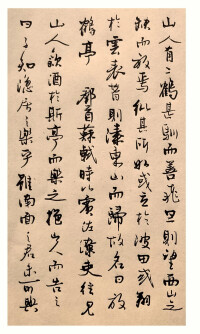 山人有二鶴甚馴而善飛旦則望西山之
缺而放焉縱其所如或立於陂田或翔
於雲表暮則傃東山而歸故名曰放
鶴亭 郡守蘇軾時從賓佐僚吏往見
山人飲酒於斯亭而樂之挹山人而告之
曰子知隱居之樂乎雖南面之君未可與